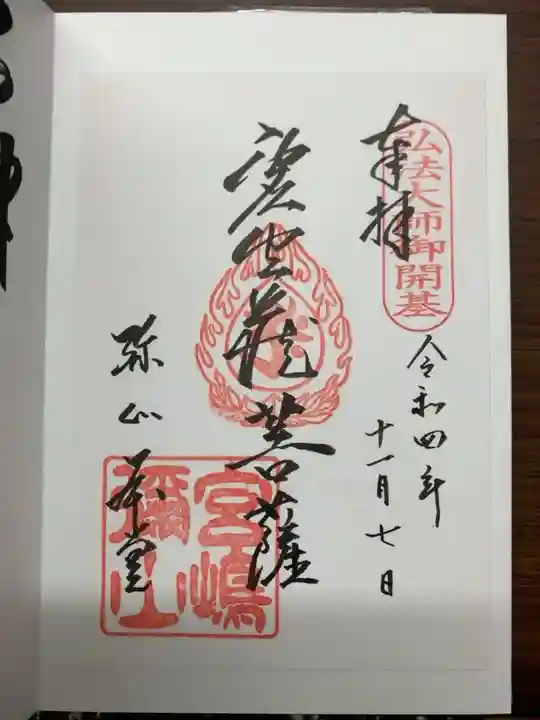 弘法大師御開基
奉拝
令和四年
十一月七日
虚空蔵菩薩
弥山本堂
宮嶋
彌山